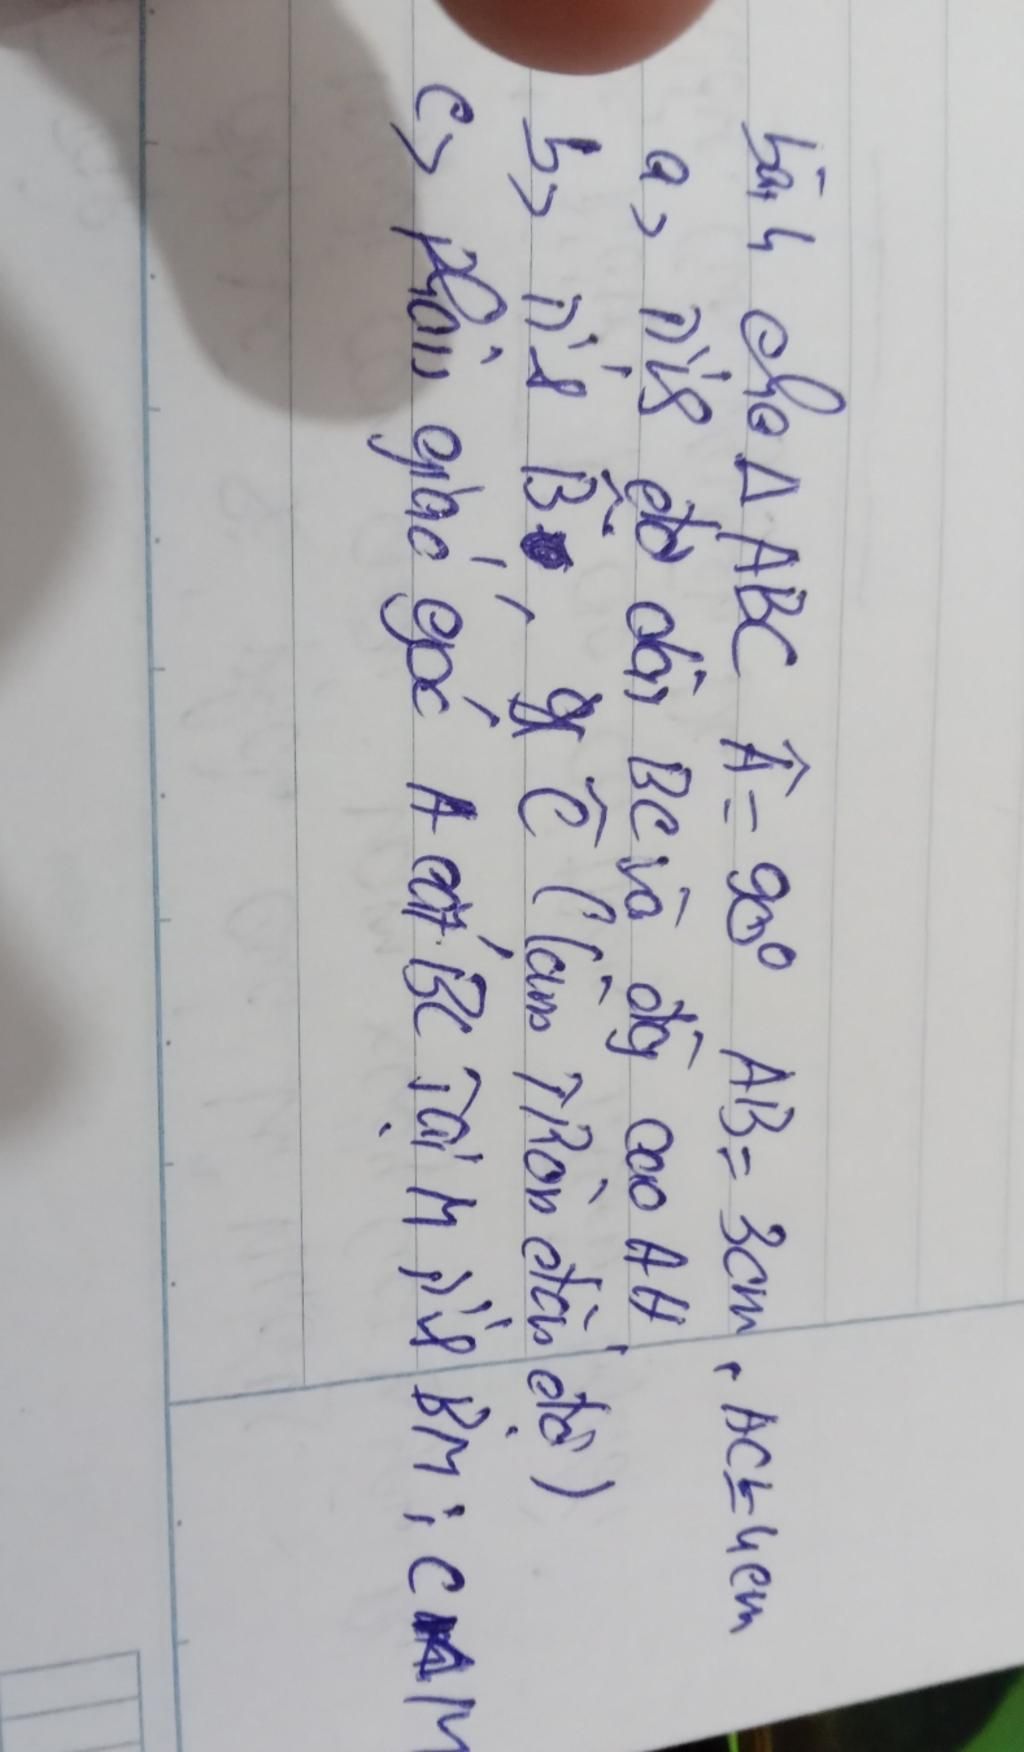 bài 4 cho Δ ABC Â = 90° AB = 3cm, AC = 4cm
a> tính độ dài BC và đg cao AH
b> tính B̂, góc Ĉ (làm tròn đến độ)
c> phân giác góc A cắt BC Tại M tính BM; CM